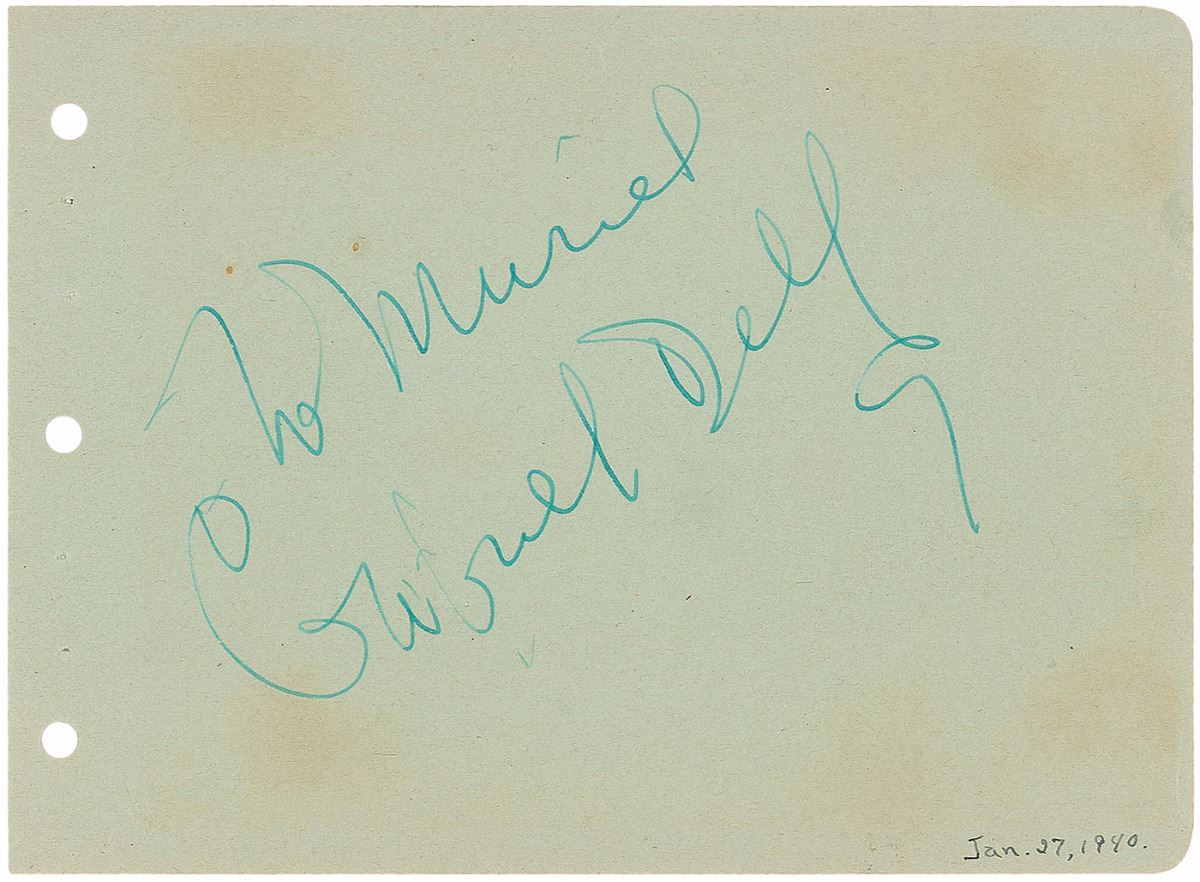 To Muriel
Gabriel Dell
Jan. 27, 1940.